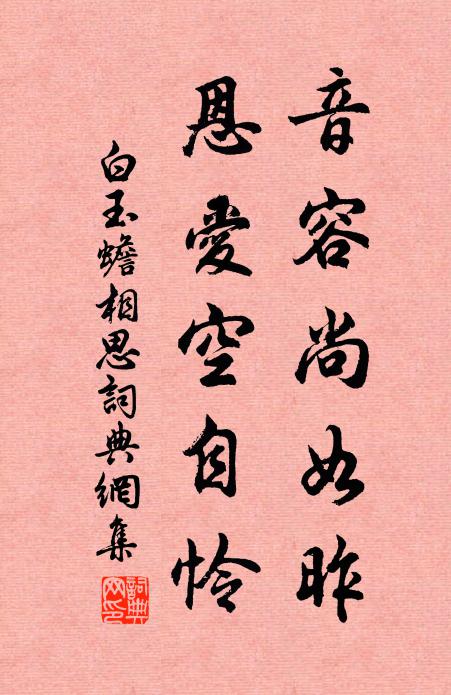 音容尚如昨
恩愛空自怜
白玉蟾相思詞典網集
詞典網印